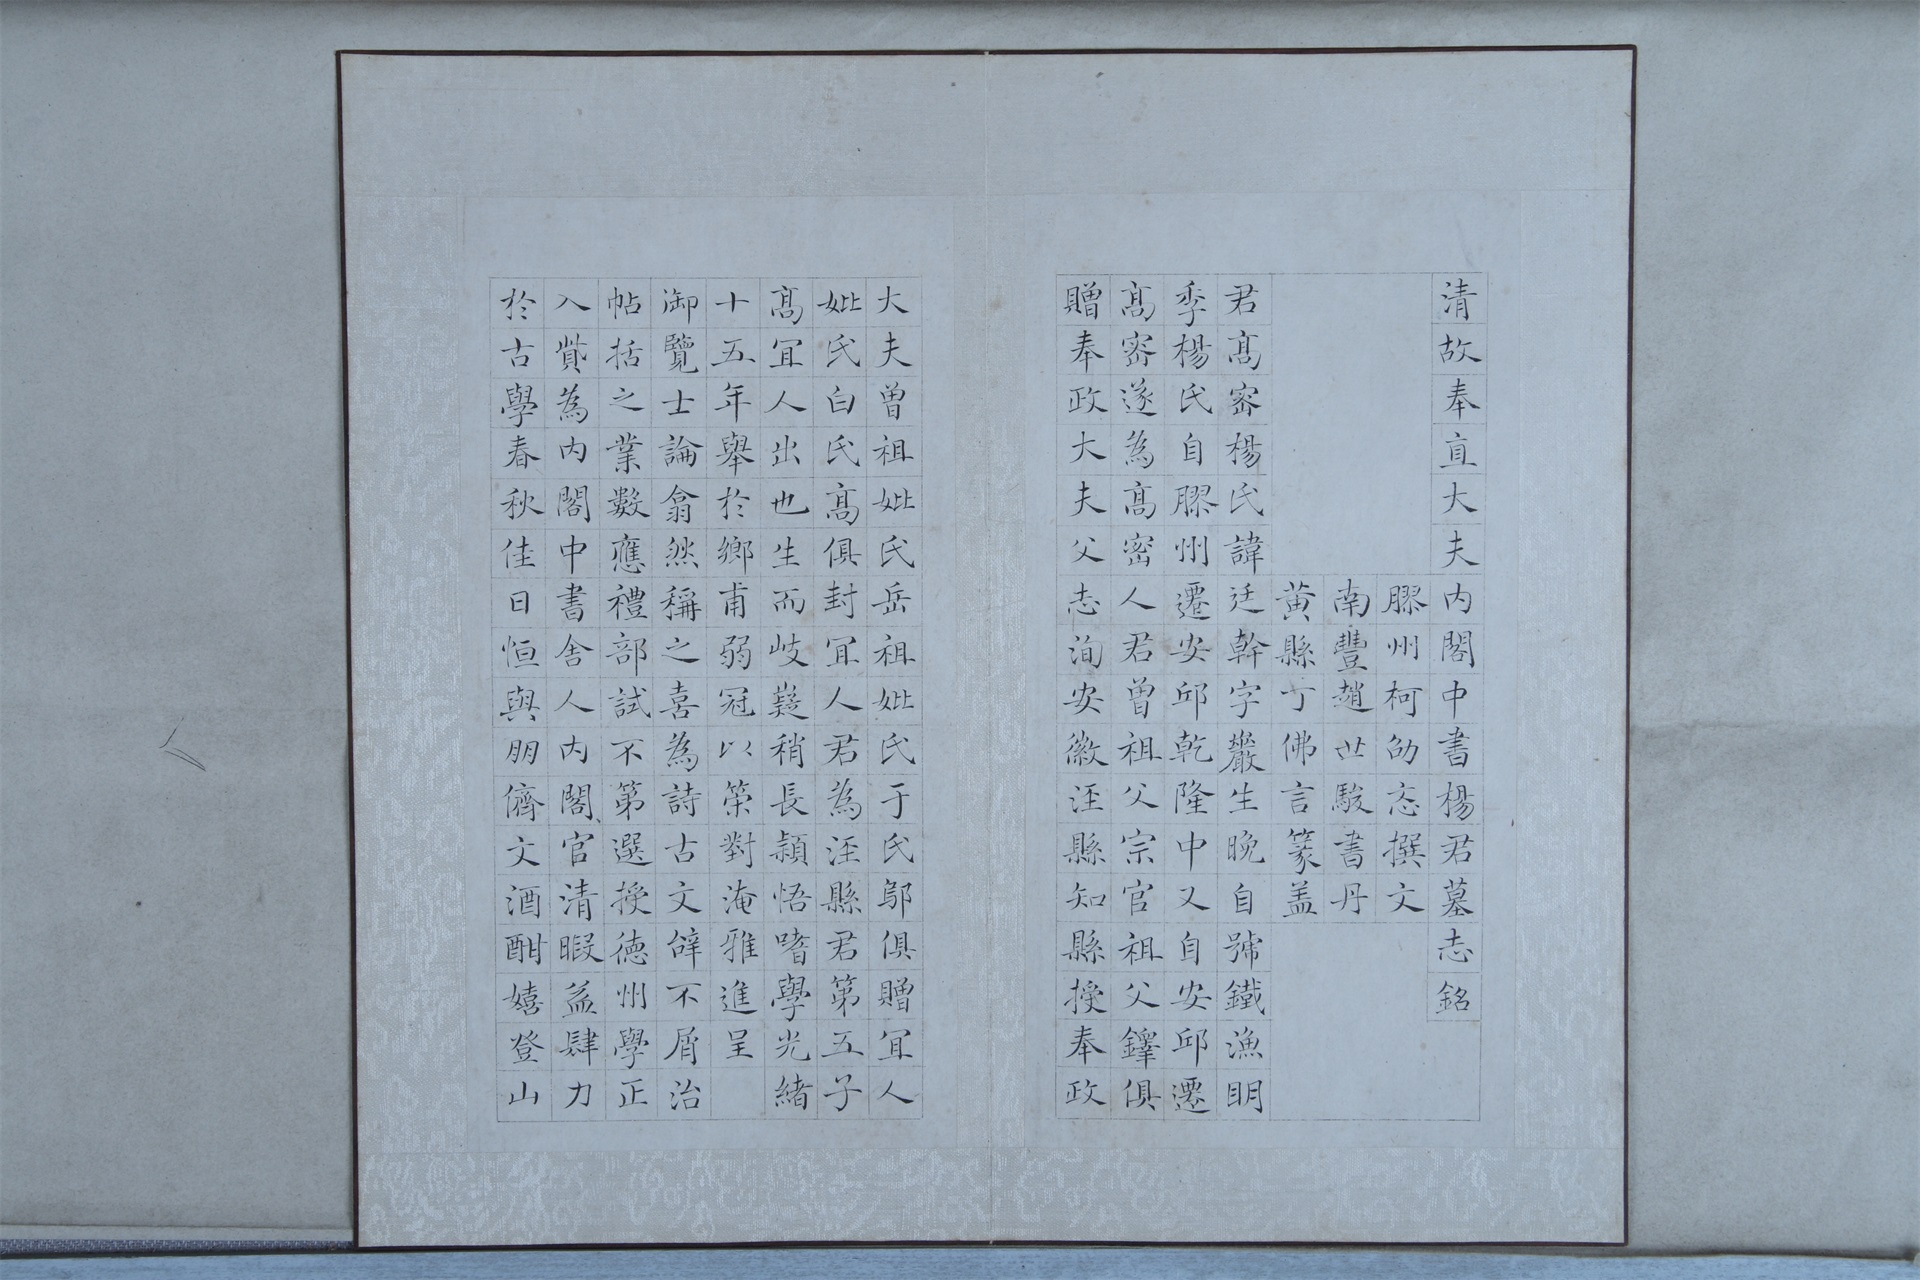 清故奉直大夫内閣中書楊君墓志銘
膠州柯劭忞撰文
南豐趙世駿書丹
黃縣丁佛言篆盖
君髙密楊氏諱廷幹字巖生晚自號鐵漁明
季楊氏自膠州遷安邱乾隆中又自安邱遷
髙密遂為髙密人君曾祖父宗官祖父鐸俱
贈奉政大夫父志洵安徽涇縣知縣授奉政
大夫曾祖妣氏岳祖妣氏于氏邬俱贈冝人
妣氏白氏髙俱封冝人君為涇縣君第五子
髙冝人出也生而岐嶷稍長穎悟嗜學光緒
十五年舉於鄉甫弱冠以策對淹雅進呈
御覽士論翕然稱之喜為詩古文辭不屑治
帖括之業數應禮部試不第選授德州學正
入貲為内閣中書舍人内閣官清暇益肆力
於古學春秋佳日恒與朋儕文酒酣嬉登山